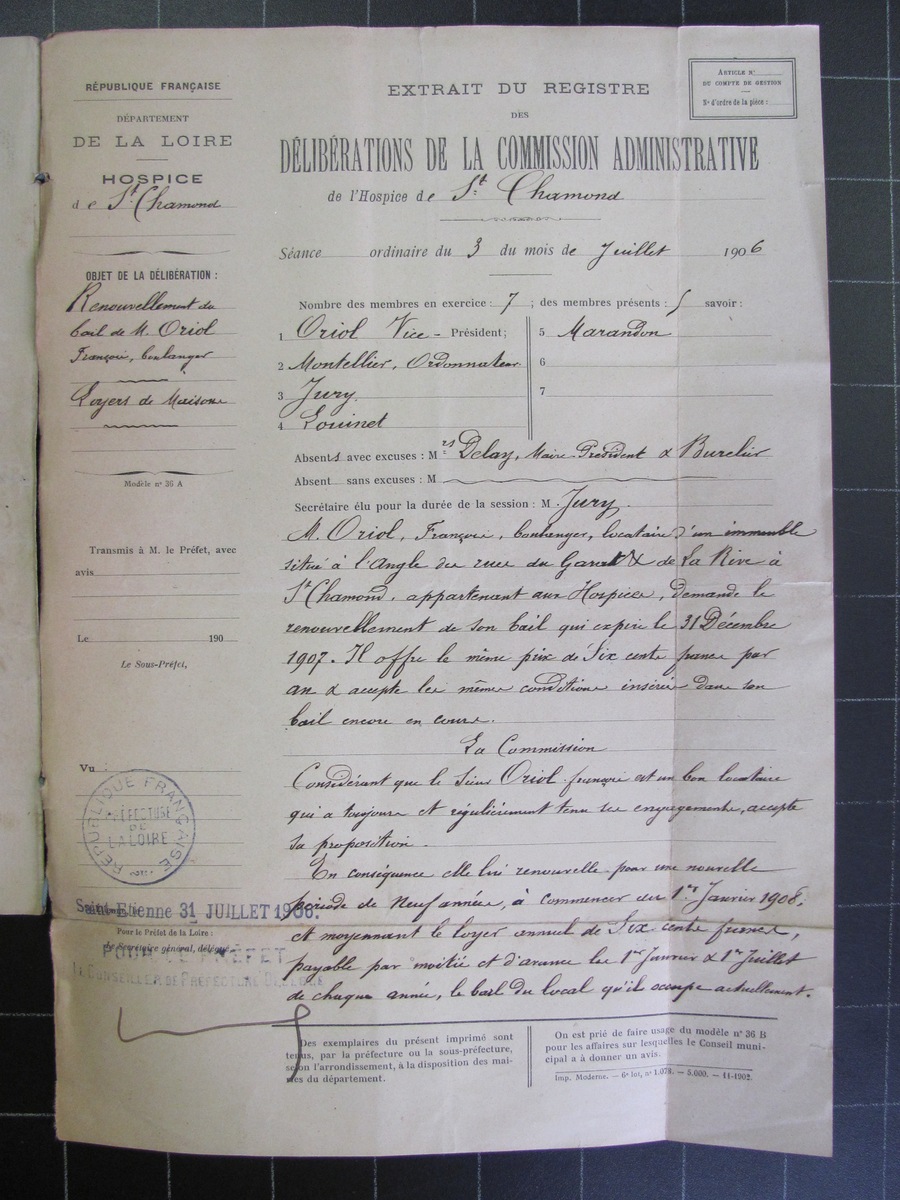 RÉPUBLIQUE FRANÇAISE
DÉPARTEMENT
DE LA LOIRE
HOSPICE
de St Chamond
OBJET DE LA DÉLIBÉRATION :
Renouvellement du
bail de M. Oriol
François, boulanger
Loyers de Maisons
Modèle n° 36 A
Transmis à M. le Préfet, avec
avis
Le 190
Le Sous-Préfet,
Vu
RÉPUBLIQUE FRANÇAISE
PRÉFECTURE
DE
LA LOIRE
Saint-Etienne 31 JUILLET 1906.
Pour le Préfet de la Loire :
Le Secrétaire général, délégué,
POUR LE PRÉFET
LE CONSEILLER DE PRÉFECTURE DÉLÉGUÉ
ARTICLE N°
DU COMPTE DE GESTION
N° d'ordre de la pièce :
EXTRAIT DU REGISTRE
DES
DÉLIBÉRATIONS DE LA COMMISSION ADMINISTRATIVE
de l'Hospice de St Chamond
Séance ordinaire du 3 du mois de Juillet 1906
Nombre des membres en exercice : 7 ; des membres présents : 5 savoir :
1 Oriol Vice-Président;
2 Montellier, Ordonnateur
3 Jury
4 Louinet
5 Marandon
6
7
Absents avec excuses : Mrs Delay, Maire-Président & Burelier
Absent sans excuses : M
Secrétaire élu pour la durée de la session : M. Jury.
M. Oriol, François, boulanger, locataire d'un immeuble
situé à l'Angle des rues du Garat & de La Rive à
St Chamond, appartenant aux Hospices, demande le
renouvellement de son bail qui expire le 31 Décembre
1907. Il offre le même prix de Six cents francs par
an & accepte les mêmes conditions insérées dans son
bail encore en cours.
La Commission
Considérant que le Sieur Oriol françois est un bon locataire
qui a toujours et régulièrement tenu ses engagements, accepte
sa proposition.
En conséquence elle lui renouvelle pour une nouvelle
période de Neuf années, à commencer du 1er Janvier 1908.
et moyennant le loyer annuel de Six cents francs,
payable par moitié et d'avance les 1er Janvier & 1er Juillet
de chaque année, le bail du local qu'il occupe actuellement.
Des exemplaires du présent imprimé sont
tenus, par la préfecture ou la sous-préfecture,
selon l'arrondissement, à la disposition des mai-
ries du département.
On est prié de faire usage du modèle n° 36 B
pour les affaires sur lesquelles le Conseil muni-
cipal a à donner un avis.
Imp. Moderne. — 6e lot, n° 1.078. — 5.000. — 11-1902.